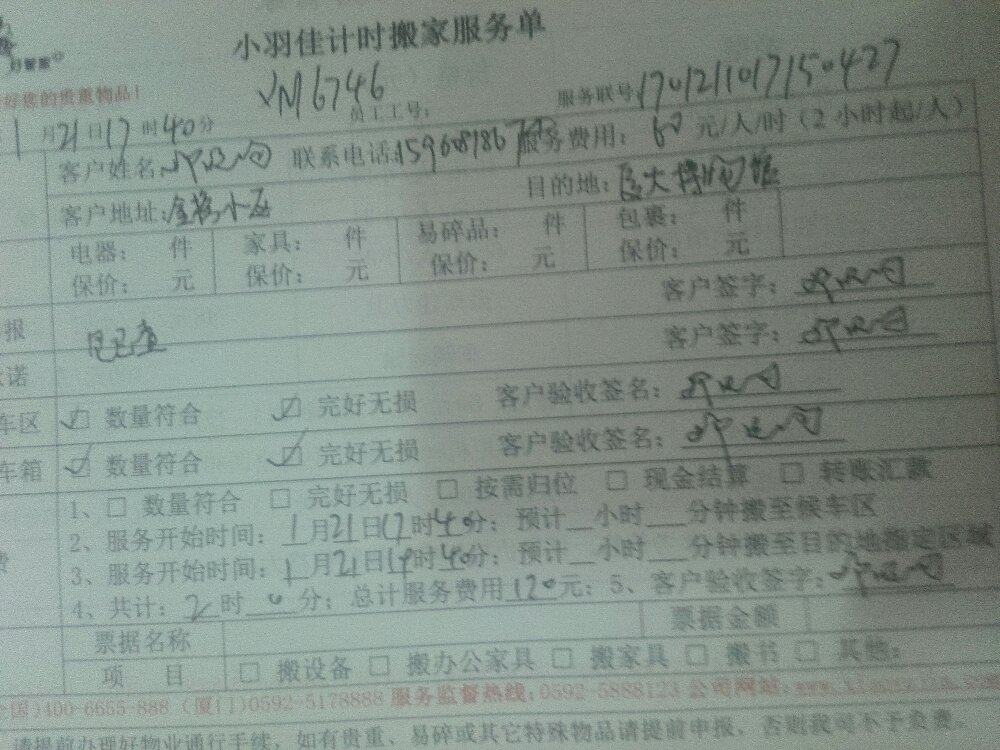 小羽佳计时搬家服务单
好管家
好您的贵重物品!
VM6746
员工工号:
服务联号 1701211017150427
1月21日17时40分
客户姓名: 联系电话: 服务费用: 60元/人/时(2小时起/人)
客户地址: 目的地:
电器: 件 家具: 件 易碎品: 件 包裹: 件
保价: 元 保价: 元 保价: 元 保价: 元
客户签字:
报 已 客户签字:
诺
车区 ☑ 数量符合 ☑ 完好无损 客户验收签名:
车箱 ☑ 数量符合 ☑ 完好无损 客户验收签名:
1、□ 数量符合 □ 完好无损 □ 按需归位 □ 现金结算 □ 转账汇款
2、服务开始时间: 1月21日17时40分; 预计__小时___分钟搬至候车区
费 3、服务开始时间: 1月21日19时40分; 预计__小时___分钟搬至目的地指定区域
4、共计: 2时0分; 总计服务费用120元; 5、客户验收签字:
票据名称 票据金额
项 目 □ 搬设备 □ 搬办公家具 □ 搬家具 □ 搬书 □ 其他:
全国)400-6655-888 (厦门)0592-5178888 服务监督热线:0592-5888123 公司网站:
请提前办理好物业通行手续,如有贵重、易碎或其它特殊物品请提前申报,否则我司不予负责。